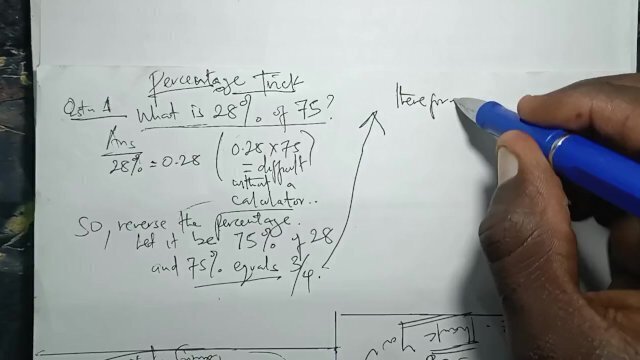 Percentage Trick
Qstn 1 What is 28% of 75?
Ans
28% = 0.28
(0.28 x 75
= difficult
without a
calculator..)
So, reverse the percentage.
Let it be 75% of 28
and 75% equals 3/4.